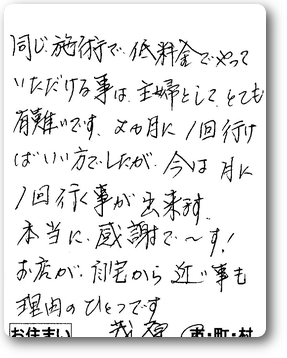 同じ施術で、低料金でやって
いただける事は、主婦として、とても
有難いです。2ヵ月に1回行け
ばいい方でしたが、今は月に
1回行く事が出来ます。
本当に、感謝で〜す!
お店が、自宅から近い事も
理由のひとつです
お住まい 茂原 市・町・村